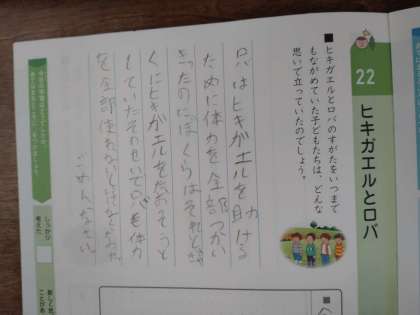 22
ヒキガエルとロバ
■ヒキガエルとロバのすがたをいつまで
もながめていた子どもたちは、どんな
思いで立っていたのでしょう。
只はヒキがエルを助ける
ために体力を全部つかい
きったのにぼくらはそれとぎゃ
くにヒキがエルをたおそうと
していたそのせいでロバも体力
を全部使わなしければ
ごめんなさい。
しっかり
考えた